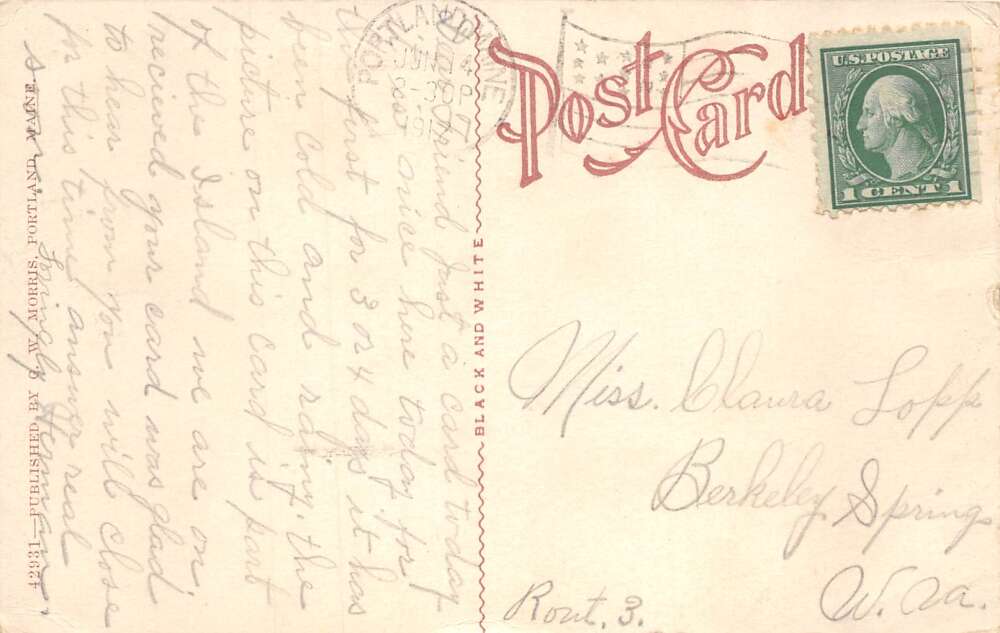 Post Card
U.S. POSTAGE
1 CENT 1
PORTLAND, MAINE
JUN 14
3 30 P
191
BLACK AND WHITE
Dear Friend Just a card today
nice here today for
the first for 3 or 4 days it has
been cold and rainy. the
picture on this card is part
of the Island we are on
recieved your card was glad
to hear from you will close
for this time answer real
soon
Lovingly Herman
42931—PUBLISHED BY G. W. MORRIS, PORTLAND, MAINE
Miss. Claura Lopp
Berkeley Springs
W. Va.
Rout. 3.